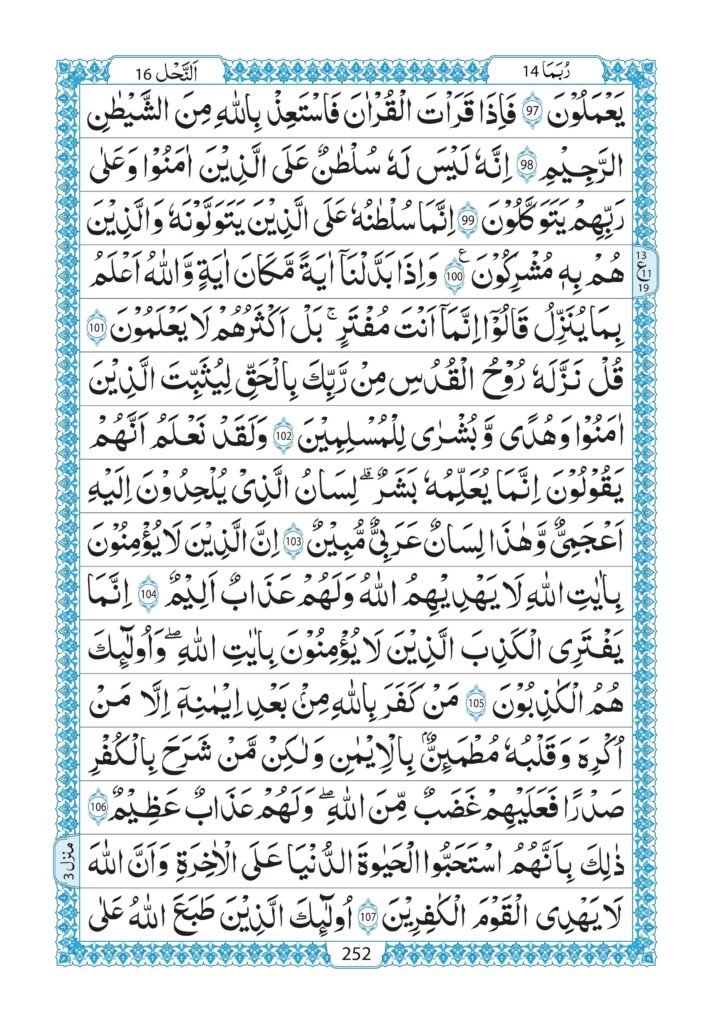 رُبَمَا 14
اَلنَّحْل 16
يَعْمَلُوْنَ 97 فَاِذَا قَرَاْتَ الْقُرْاٰنَ فَاسْتَعِذْ بِاللّٰهِ مِنَ الشَّيْطٰنِ
الرَّجِيْمِ 98 اِنَّهٗ لَيْسَ لَهٗ سُلْطٰنٌ عَلَى الَّذِيْنَ اٰمَنُوْا وَعَلٰى
رَبِّهِمْ يَتَوَكَّلُوْنَ 99 اِنَّمَا سُلْطٰنُهٗ عَلَى الَّذِيْنَ يَتَوَلَّوْنَهٗ وَالَّذِيْنَ
هُمْ بِهٖ مُشْرِكُوْنَ ۧ 100 وَاِذَا بَدَّلْنَاۤ اٰيَةً مَّكَانَ اٰيَةٍ وَّاللّٰهُ اَعْلَمُ
13
ع 11
19
بِمَا يُنَزِّلُ قَالُوْۤا اِنَّمَاۤ اَنْتَ مُفْتَرٍ ۚ بَلْ اَكْثَرُهُمْ لَا يَعْلَمُوْنَ 101
قُلْ نَزَّلَهٗ رُوْحُ الْقُدُسِ مِنْ رَّبِّكَ بِالْحَقِّ لِيُثَبِّتَ الَّذِيْنَ
اٰمَنُوْا وَهُدًى وَّبُشْرٰى لِلْمُسْلِمِيْنَ 102 وَلَقَدْ نَعْلَمُ اَنَّهُمْ
يَقُوْلُوْنَ اِنَّمَا يُعَلِّمُهٗ بَشَرٌ ؕ لِسَانُ الَّذِيْ يُلْحِدُوْنَ اِلَيْهِ
اَعْجَمِيٌّ وَّهٰذَا لِسَانٌ عَرَبِيٌّ مُّبِيْنٌ 103 اِنَّ الَّذِيْنَ لَا يُؤْمِنُوْنَ
بِاٰيٰتِ اللّٰهِ لَا يَهْدِيْهِمُ اللّٰهُ وَلَهُمْ عَذَابٌ اَلِيْمٌ 104 اِنَّمَا
يَفْتَرِى الْكَذِبَ الَّذِيْنَ لَا يُؤْمِنُوْنَ بِاٰيٰتِ اللّٰهِ ۖ وَاُولٰٓئِكَ
هُمُ الْكٰذِبُوْنَ 105 مَنْ كَفَرَ بِاللّٰهِ مِنْۢ بَعْدِ اِيْمٰنِهٖۤ اِلَّا مَنْ
اُكْرِهَ وَقَلْبُهٗ مُطْمَئِنٌّۢ بِالْاِيْمٰنِ وَلٰكِنْ مَّنْ شَرَحَ بِالْكُفْرِ
صَدْرًا فَعَلَيْهِمْ غَضَبٌ مِّنَ اللّٰهِ ۖ وَلَهُمْ عَذَابٌ عَظِيْمٌ 106
ذٰلِكَ بِاَنَّهُمُ اسْتَحَبُّوا الْحَيٰوةَ الدُّنْيَا عَلَى الْاٰخِرَةِ وَاَنَّ اللّٰهَ
منزل 3
لَا يَهْدِى الْقَوْمَ الْكٰفِرِيْنَ 107 اُولٰٓئِكَ الَّذِيْنَ طَبَعَ اللّٰهُ عَلٰى
252